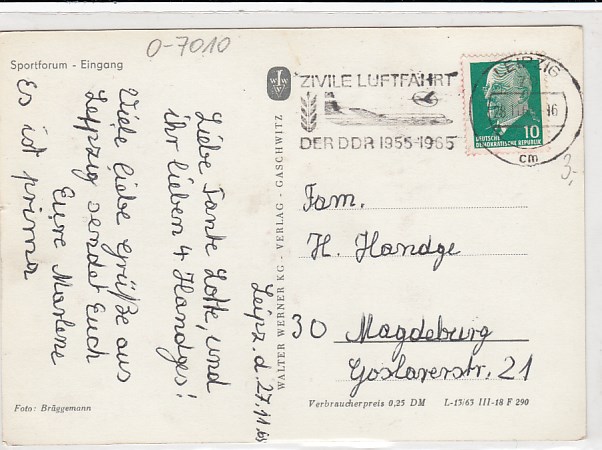 0-7010
Sportforum - Eingang
Leipz. d. 27.11.65
Liebe Tante Lotte, und
ihr lieben 4 Handges!
Viele liebe Grüße aus
Leipzig sendet Euch
Eure Marlene
Es ist prima
WALTER WERNER KG · VERLAG · GASCHWITZ
ZIVILE LUFTFAHRT
DER DDR 1955-1965
LEIPZIG
cm
10
DEUTSCHE
DEMOKRATISCHE REPUBLIK
3,-
Fam.
H. Handge
30 Magdeburg
Goslarerstr. 21
Foto: Brüggemann
Verbraucherpreis 0,25 DM
L-13/65 III-18 F 290